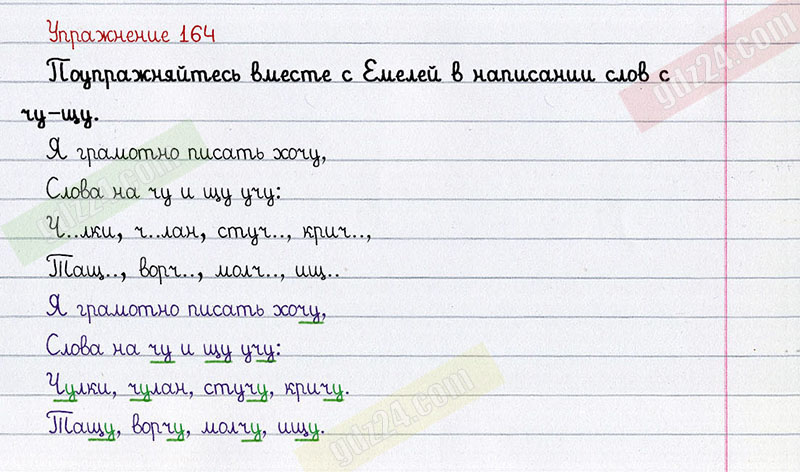 Упражнение 164
Поупражняйтесь вместе с Емелей в написании слов с
чу-щу.
Я грамотно писать хочу,
Слова на чу и щу учу:
Ч..лки, ч..лан, стуч.., крич..,
Тащ.., ворч.., молч.., ищ..
Я грамотно писать хочу,
Слова на чу и щу учу:
Чулки, чулан, стучу, кричу.
Тащу, ворчу, молчу, ищу.
gdz24.com
gdz24.com
gdz24.com